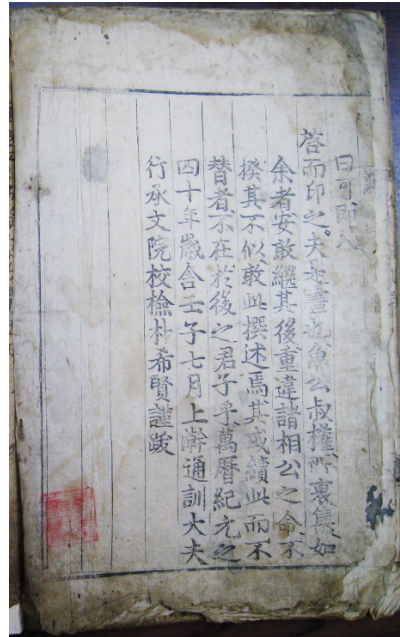 曰可卽入
啓而印之。夫是書也魚公叔權所裒集如
余者安敢繼其後重違諸相公之命不
揆其不似敢此撰述焉其或續此而不
替者不在於後之君子乎萬曆紀元之
四十年歲舍壬子七月上澣通訓大夫
行承文院校檢朴希賢謹跋